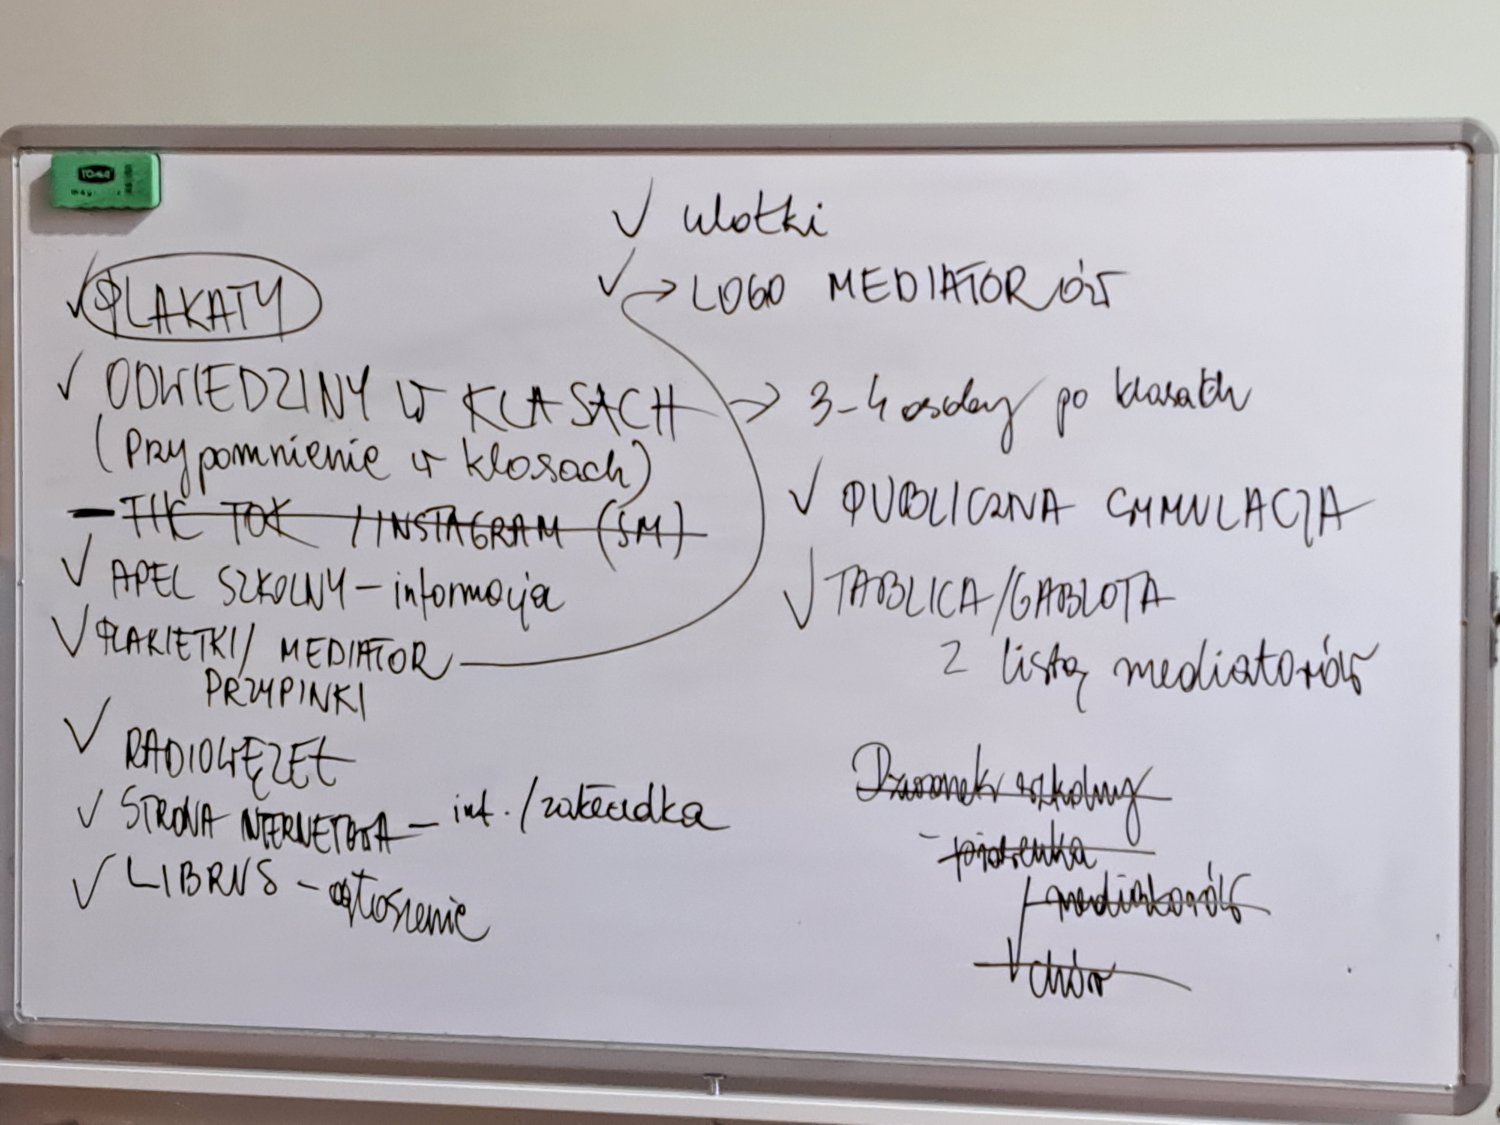 TOMA
✓ ulotki
✓ → LOGO MEDIATORÓW
✓ PLAKATY
✓ ODWIEDZINY W KLASACH → 3-4 osoby po klasach
(Przypomnienie w klasach)
- TIK TOK / INSTAGRAM (SM)
✓ APEL SZKOLNY - informacja
✓ PLAKIETKI / MEDIATOR
PRZYPINKI
✓ RADIOWĘZEŁ
✓ STRONA INTERNETOWA - inf. / zakładka
✓ LIBRUS - ogłoszenie
✓ PUBLICZNA SYMULACJA
✓ TABLICA/GABLOTA
z listą mediatorów
Dzwonek szkolny
- piosenka
mediatorów
chór